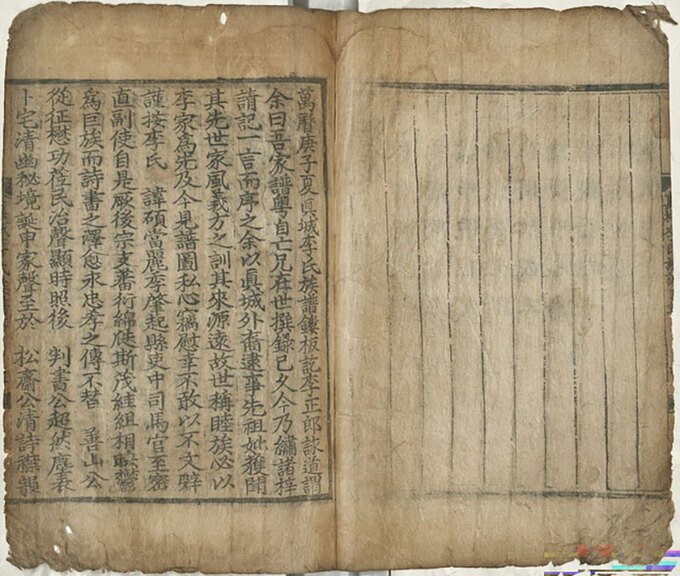 萬曆庚子夏眞城李氏族譜鏤板訖李正郞詠道謂
余曰吾家譜粤自亡兄在世撰錄已久今乃繡諸梓
請記一言而序之余以眞城外裔逮事先祖妣獲聞
其先世家風義方之訓其來源遠故世稱睦族必以
李家爲先及今見譜圖私心竊慰幸不敢以不文辭
謹按李氏 諱碩當麗季肇起縣吏中司馬官至密
直副使自是厥後宗支蕃衍綿瓞斯茂絓組相聯
爲巨族而詩書之澤愈永忠孝之傳不替 善山公
從征懋功莅民治聲顯時照後 判書公超然塵表
卜宅淸幽秘境誕申家聲至於 松齋公淸詩